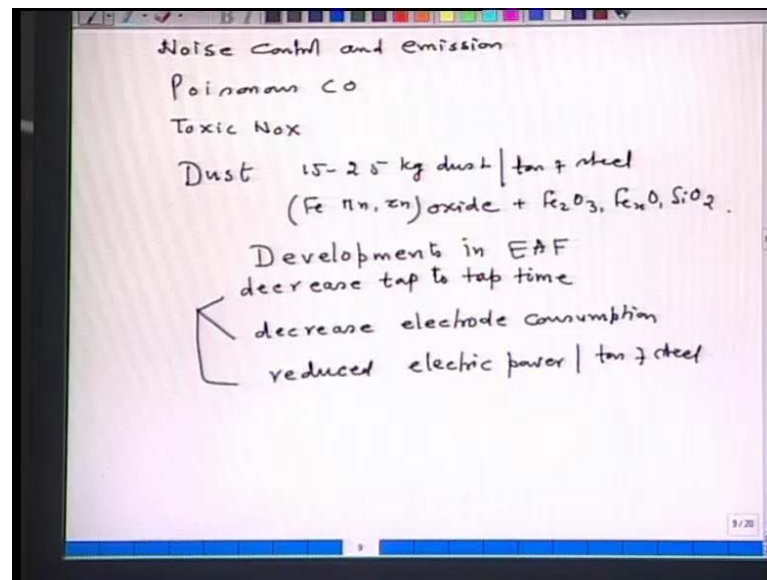 Noise Control and emission
Poisonous CO
Toxic NOx
Dust 15-25 kg dust | ton of steel
(Fe Mn, Zn) oxide + Fe2O3, FexO, SiO2.
Developments in EAF
decrease tap to tap time
decrease electrode consumption
reduced electric power | ton of steel
9/20
9